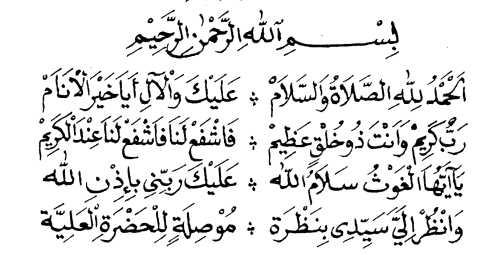 بِسْمِ اللهِ الرَّحْمٰنِ الرَّحِيْمِ
اَلْحَمْدُ لِلّٰهِ الصَّلَاةُ وَالسَّلَامْ ۞ عَلَيْكَ وَالْآلِ أَيَا خَيْرَ الْأَنَامْ
رَبٌّ كَرِيْمٌ وَاَنْتَ ذُو خُلْقٍ عَظِيْمْ ۞ فَاشْفَعْ لَنَا فَاشْفَعْ لَنَا عِنْدَ الْكَرِيْمْ
يَآ اَيُّهَا الْغَوْثُ سَلَامُ اللهْ ۞ عَلَيْكَ رَبِّنِى بِإِذْنِ اللهْ
وَانْظُرْ اِلَيَّ سَيِّدِى بِنَظْرَةْ ۞ مُوْصِلَةٍ لِلْحَضْرَةِ الْعَلِيَّةْ